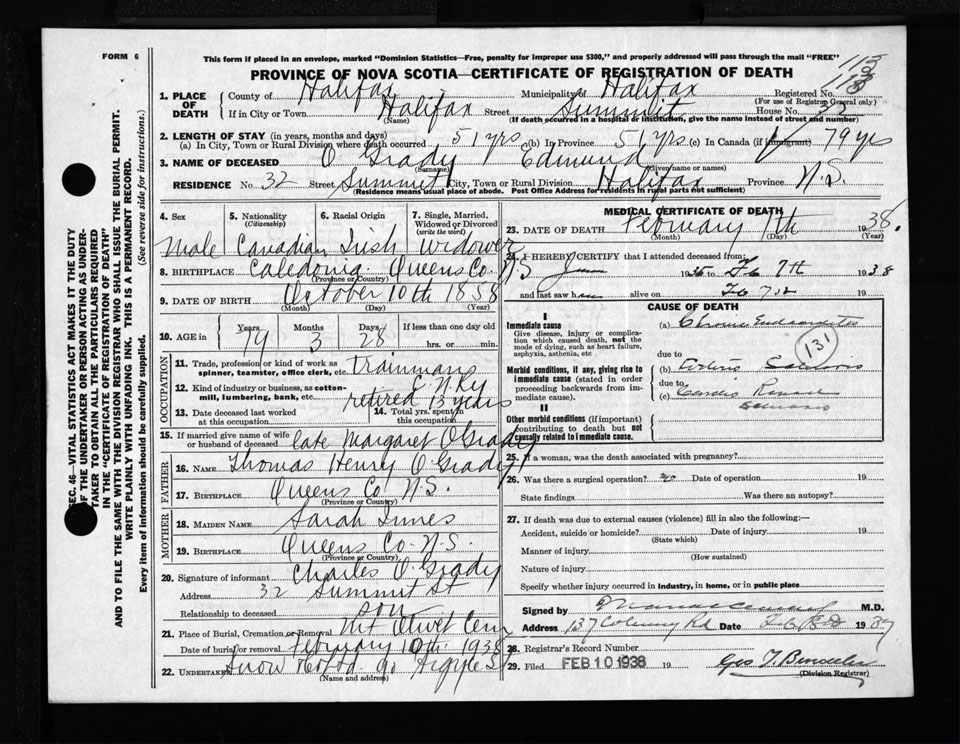 FORM 6
This form if placed in an envelope, marked "Dominion Statistics—Free, penalty for improper use $300," and properly addressed will pass through the mail "FREE"
PROVINCE OF NOVA SCOTIA—CERTIFICATE OF REGISTRATION OF DEATH
1. PLACE OF DEATH County of Halifax Municipality of Halifax Registered No.
(For use of Registrar General only)
If in City or Town Halifax Street Summit House No. 32
(Name) (If death occurred in a hospital or institution, give the name instead of street and number)
2. LENGTH OF STAY (in years, months and days)
(a) In City, Town or Rural Division where death occurred 51 yrs (b) In Province 51 yrs. (c) In Canada (if immigrant) 79 yrs
3. NAME OF DECEASED O'Grady Edmund
(Surname) (Given name or names)
RESIDENCE No. 32 Street Summit City, Town or Rural Division Halifax Province N.S.
(Residence means usual place of abode. Post Office Address for residents in rural parts not sufficient)
4. Sex 5. Nationality (Citizenship) 6. Racial Origin 7. Single, Married, Widowed or Divorced (write the word)
Male Canadian Irish Widower
8. BIRTHPLACE Caledonia Queens Co. N.S
(Province or Country)
9. DATE OF BIRTH October 10th 1858
(Month) (Day) (Year)
10. AGE in Years Months Days If less than one day old
79 3 28 hrs. or min.
OCCUPATION
11. Trade, profession or kind of work as spinner, teamster, office clerk, etc. trainman
12. Kind of industry or business, as cotton-mill, lumbering, bank, etc. C N Ry
retired 13 years
13. Date deceased last worked at this occupation 14. Total yrs. spent in this occupation
15. If married give name of wife or husband of deceased late Margaret O'Grady
FATHER
16. NAME Thomas Henry O'Grady
17. BIRTHPLACE Queens Co N.S.
(Province or Country)
MOTHER
18. MAIDEN NAME Sarah Innes
19. BIRTHPLACE Queens Co. N.S.
(Province or Country)
20. Signature of informant Charles O'Grady
Address 32 Summit St
Relationship to deceased son
21. Place of Burial, Cremation or Removal Mt Olivet Cem
Date of burial or removal February 10th 1938
22. UNDERTAKER Snow & Co Ltd. 90 Argyle St
(Name and address)
MEDICAL CERTIFICATE OF DEATH
23. DATE OF DEATH February 7th 1938.
(Month) (Day) (Year)
24. I HEREBY CERTIFY that I attended deceased from:
June 1935 to Feb 7th 1938
and last saw him alive on Feb 7th 19
CAUSE OF DEATH
I
Immediate cause
Give disease, injury or complication which caused death, not the mode of dying, such as heart failure, asphyxia, asthenia, etc
(a) Chronic Endocarditis
131
due to
Morbid conditions, if any, giving rise to immediate cause (stated in order proceeding backwards from immediate cause).
(b)
due to
(c) Cardio Renal
II
Other morbid conditions (if important) contributing to death but not causally related to immediate cause.
25. If a woman, was the death associated with pregnancy?
26. Was there a surgical operation? no Date of operation 19
State findings Was there an autopsy?
27. If death was due to external causes (violence) fill in also the following:—
Accident, suicide or homicide? Date of injury 19
(State which)
Manner of injury
(How sustained)
Nature of injury
Specify whether injury occurred in industry, in home, or in public place
Signed by M.D.
Address 137 Rd Date Feb
28. Registrar's Record Number
29. Filed FEB 10 1938 19 Geo
(Division Registrar)
SEC. 46—VITAL STATISTICS ACT MAKES IT THE DUTY
OF THE UNDERTAKER OR PERSON ACTING AS UNDER-
TAKER TO OBTAIN ALL THE PARTICULARS REQUIRED
IN THE "CERTIFICATE OF REGISTRATION OF DEATH"
AND TO FILE THE SAME WITH THE DIVISION REGISTRAR WHO SHALL ISSUE THE BURIAL PERMIT.
WRITE PLAINLY WITH UNFADING INK. THIS IS A PERMANENT RECORD.
Every item of information should be carefully supplied. (See reverse side for instructions.)